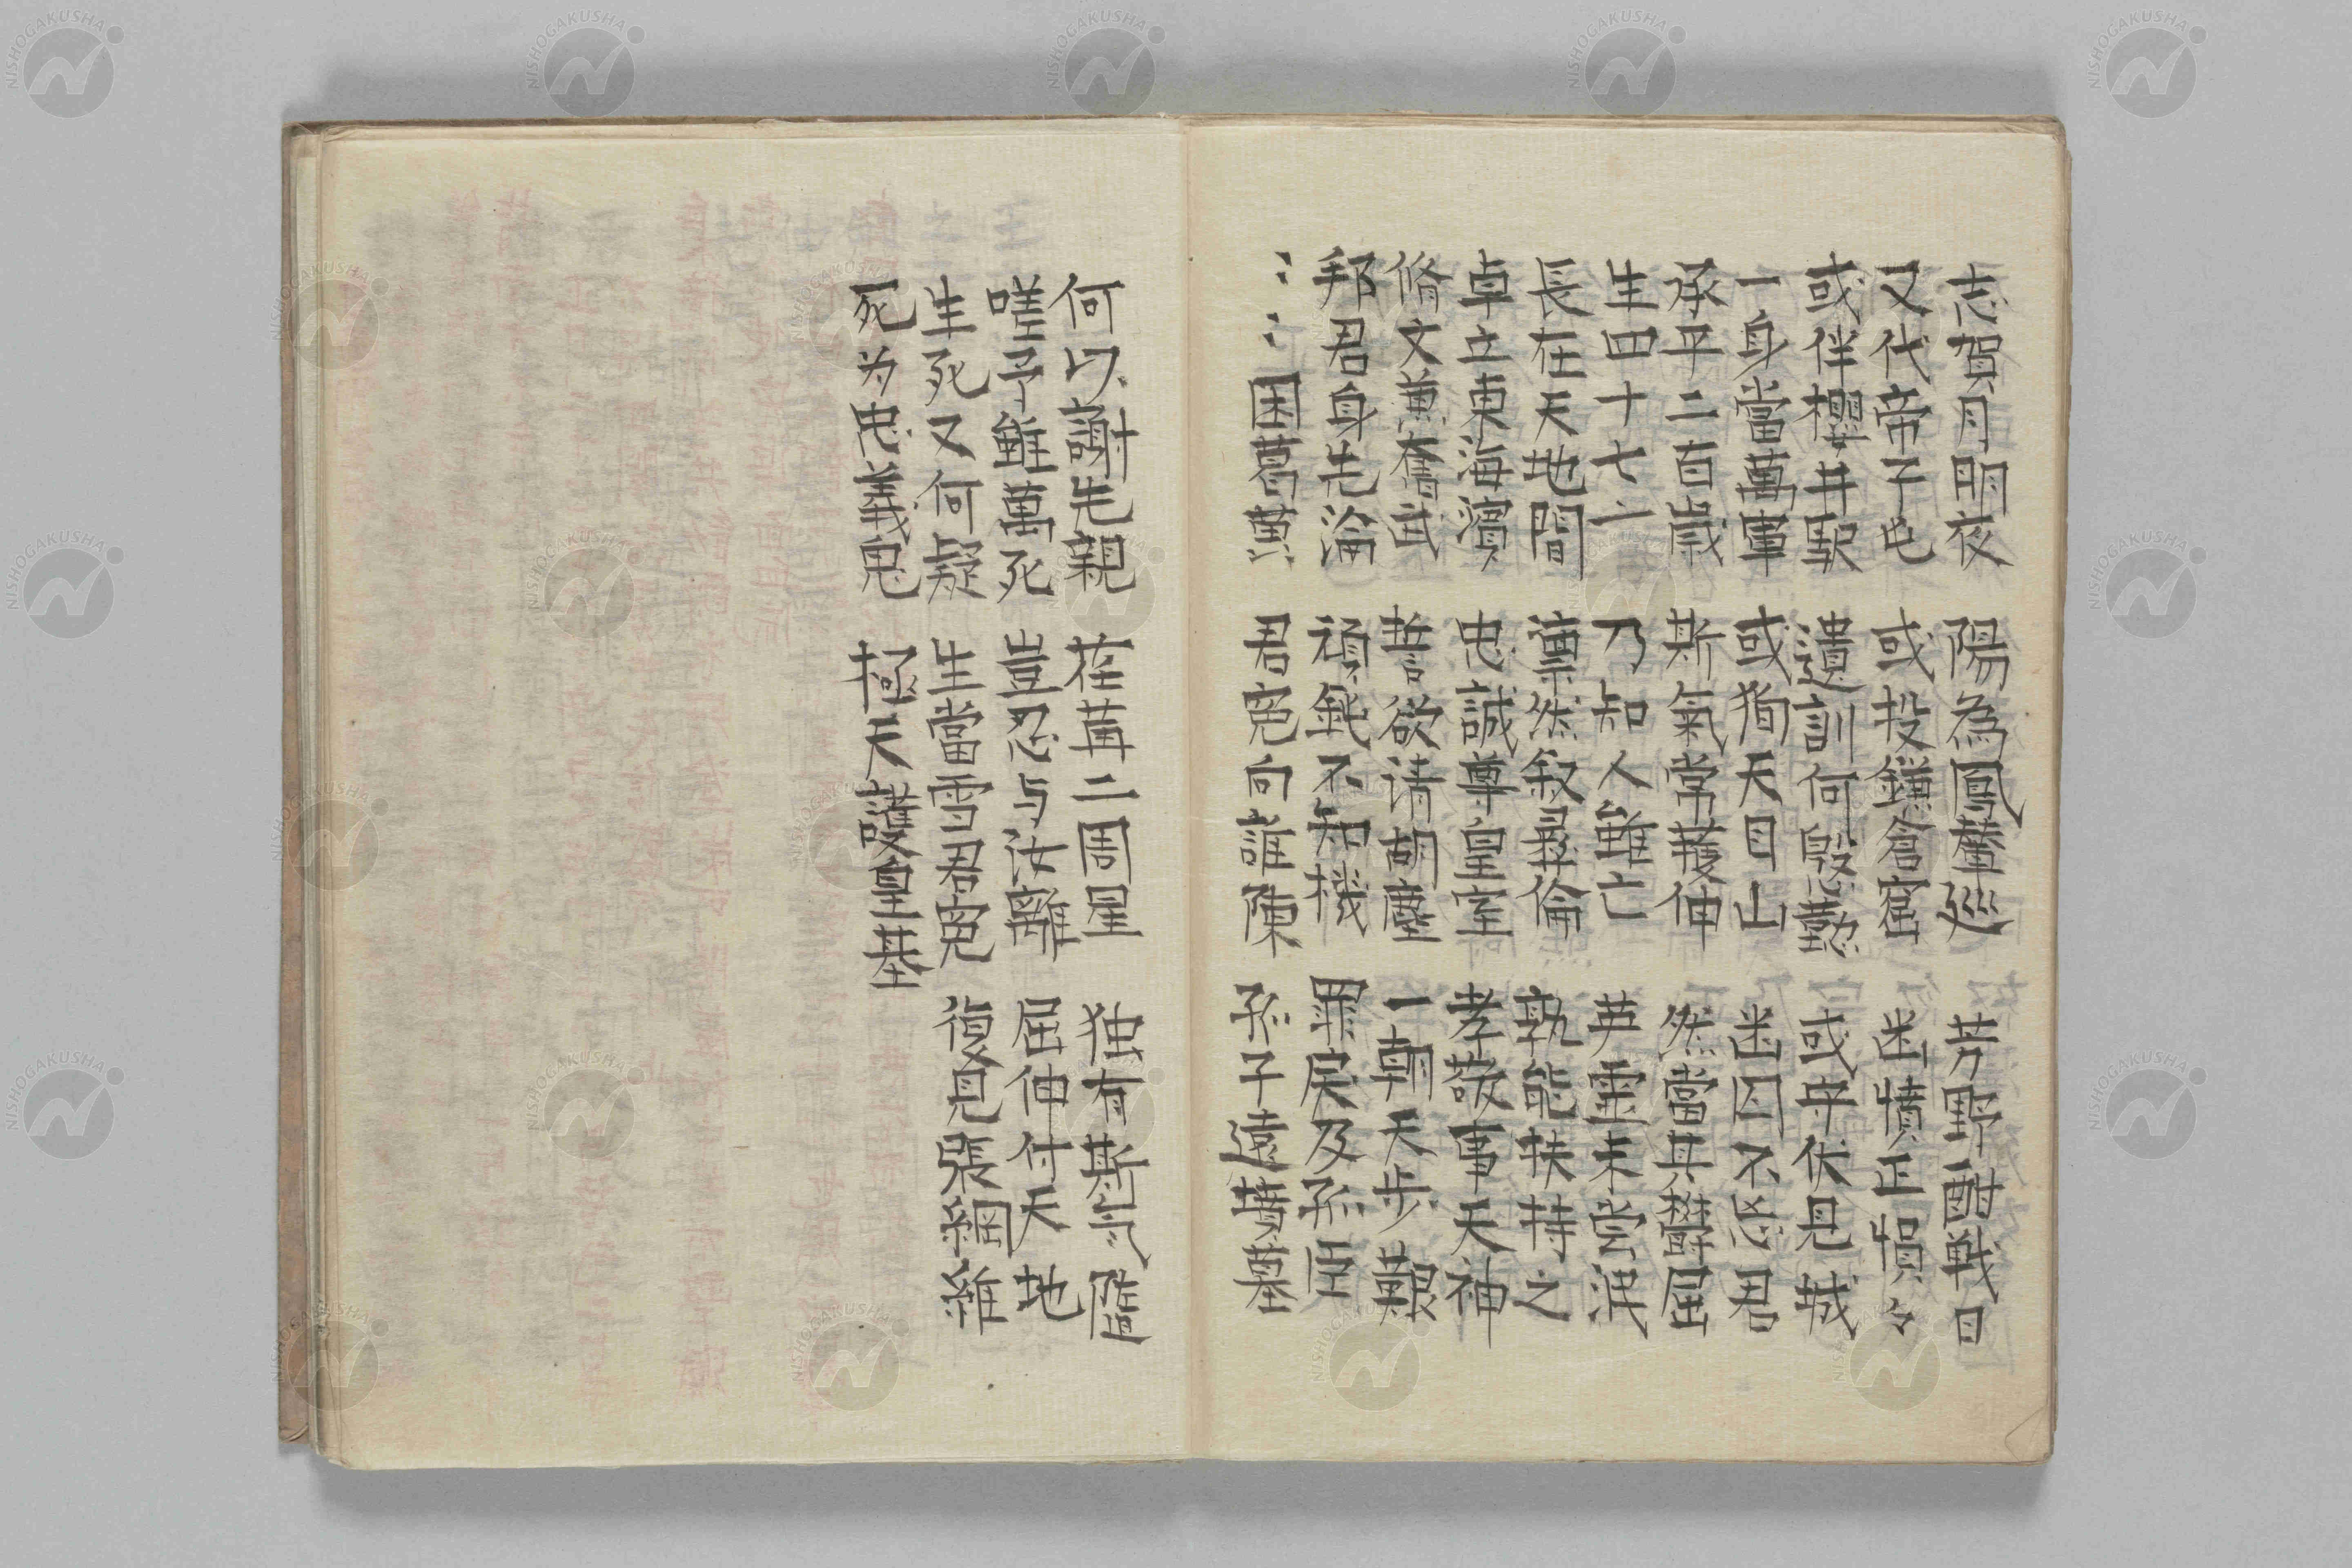 志賀月明夜　陽為鳳輦巡　芳野酣戦日
又代帝子屯　或投鎌倉窟　幽憤正愪々
或伴櫻井駅　遺訓何慇懃　或守伏見城
一身當萬軍　或殉天目山　幽囚不忘君
承平二百歳　斯氣常獲伸　然當其鬱屈
生四十七人　乃知人雖亡　英霊未嘗泯
長在天地間　凜然叙彝倫　孰能扶持之
卓立東海濱　忠誠尊皇室　孝敬事天神
脩文兼奮武　誓欲清胡塵　一朝天歩艱
邦君身先淪　頑鈍不知機　罪戻及孤臣
〻〻困葛藟　君冤向誰陳　孤子遠墳墓
何以謝先親　荏苒二周星　独有斯气随
嗟予雖萬死　豈忍与汝離　屈伸付天地
生死又何疑　生當雪君冤　復見張綱維
死为忠義鬼　極天護皇基